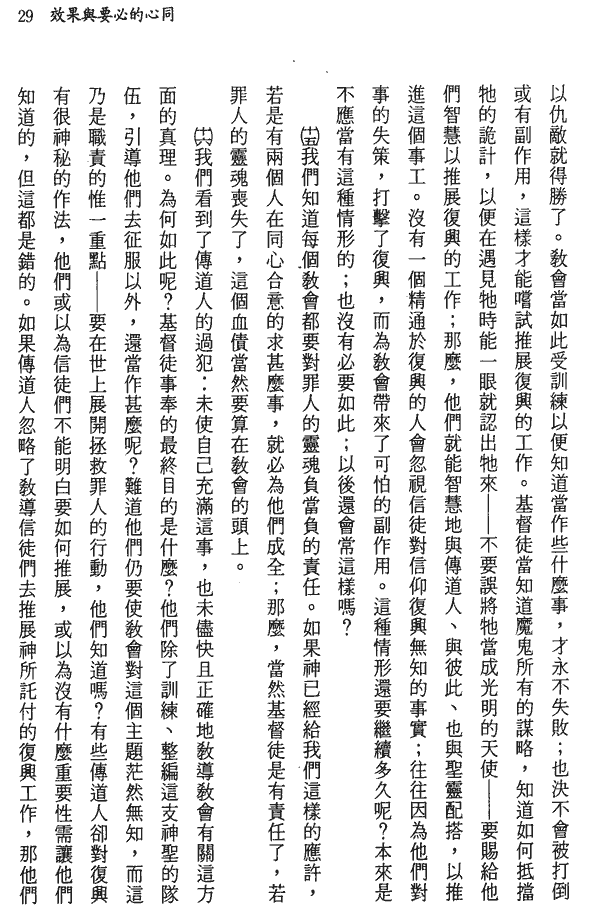 29　效果與要必的心同
以仇敵就得勝了。教會當如此受訓練以便知道當作些什麼事，才永不失敗；也決不會被打倒
或有副作用，這樣才能嚐試推展復興的工作。基督徒當知道魔鬼所有的謀略，知道如何抵擋
牠的詭計，以便在遇見牠時能一眼就認出牠來——不要誤將牠當成光明的天使——要賜給他
們智慧以推展復興的工作；那麼，他們就能智慧地與傳道人、與彼此、也與聖靈配搭，以推
進這個事工。沒有一個精通於復興的人會忽視信徒對信仰復興無知的事實；往往因為他們對
事的失策，打擊了復興，而為教會帶來了可怕的副作用。這種情形還要繼續多久呢？本來是
不應當有這種情形的；也沒有必要如此；以後還會常這樣嗎？
㈩五我們知道每個教會都要對罪人的靈魂負當負的責任。如果神已經給我們這樣的應許，
若是有兩個人在同心合意的求甚麼事，就必為他們成全；那麼，當然基督徒是有責任了，若
罪人的靈魂喪失了，這個血債當然要算在教會的頭上。
㈩六我們看到了傳道人的過犯：未使自己充滿這事，也未儘快且正確地教導教會有關這方
面的真理。為何如此呢？基督徒事奉的最終目的是什麼？他們除了訓練、整編這支神聖的隊
伍，引導他們去征服以外，還當作甚麼呢？難道他們仍要使教會對這個主題茫然無知，而這
乃是職責的惟一重點——要在世上展開拯救罪人的行動，他們知道嗎？有些傳道人卻對復興
有很神秘的作法，他們或以為信徒們不能明白要如何推展，或以為沒有什麼重要性需讓他們
知道的，但這都是錯的。如果傳道人忽略了教導信徒們去推展神所託付的復興工作，那他們